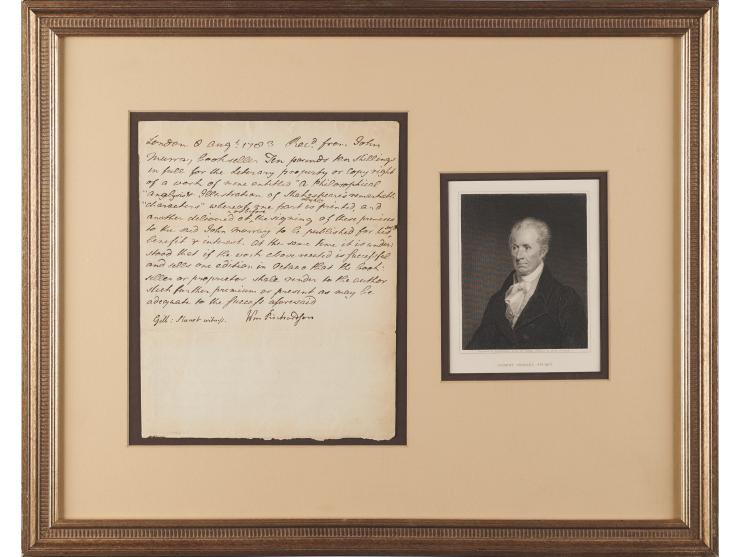 London 8 Augt. 1783 Recd. from John
Murray, Bookseller Ten pounds ten shillings
in full for the literary property or Copy right
of a work of mine entitled "a Philosophical
"analysis & Illustration of Shakespeare's remarkable
"characters" whereof one part is printed and
another delivered at the signing of these premises
to the said John Murray to be published for his
benefit & interest. At the same time it is under
stood that if the work above recited is successful
and sells one edition in Octavo that the book:
seller or proprietor shall render to the author
such further premium or present as may be
adequate to the success aforesaid
Gilb: Stuart witness. Wm Richardson
GILBERT STUART